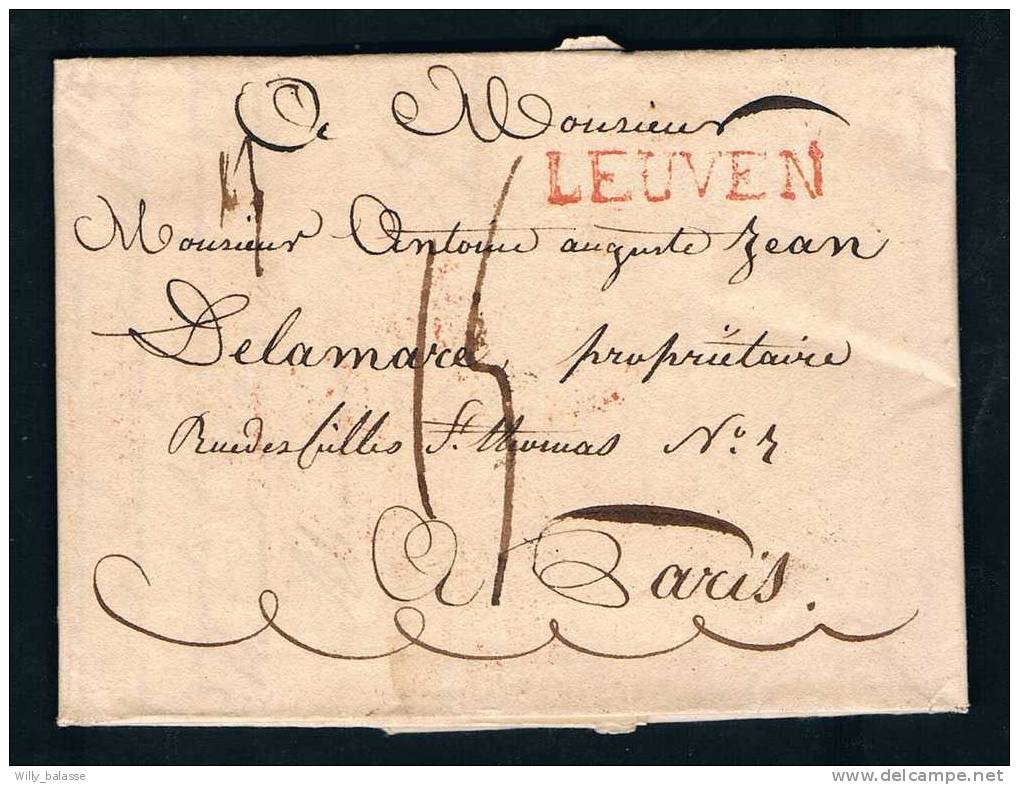 A Monsieur
LEUVEN
Monsieur Antoine auguste Jean
Delamare, proprïétaire
Rue des filles St. thomas No. 7
15
A Paris.
Willy_balasse
http://www.delcampe.net